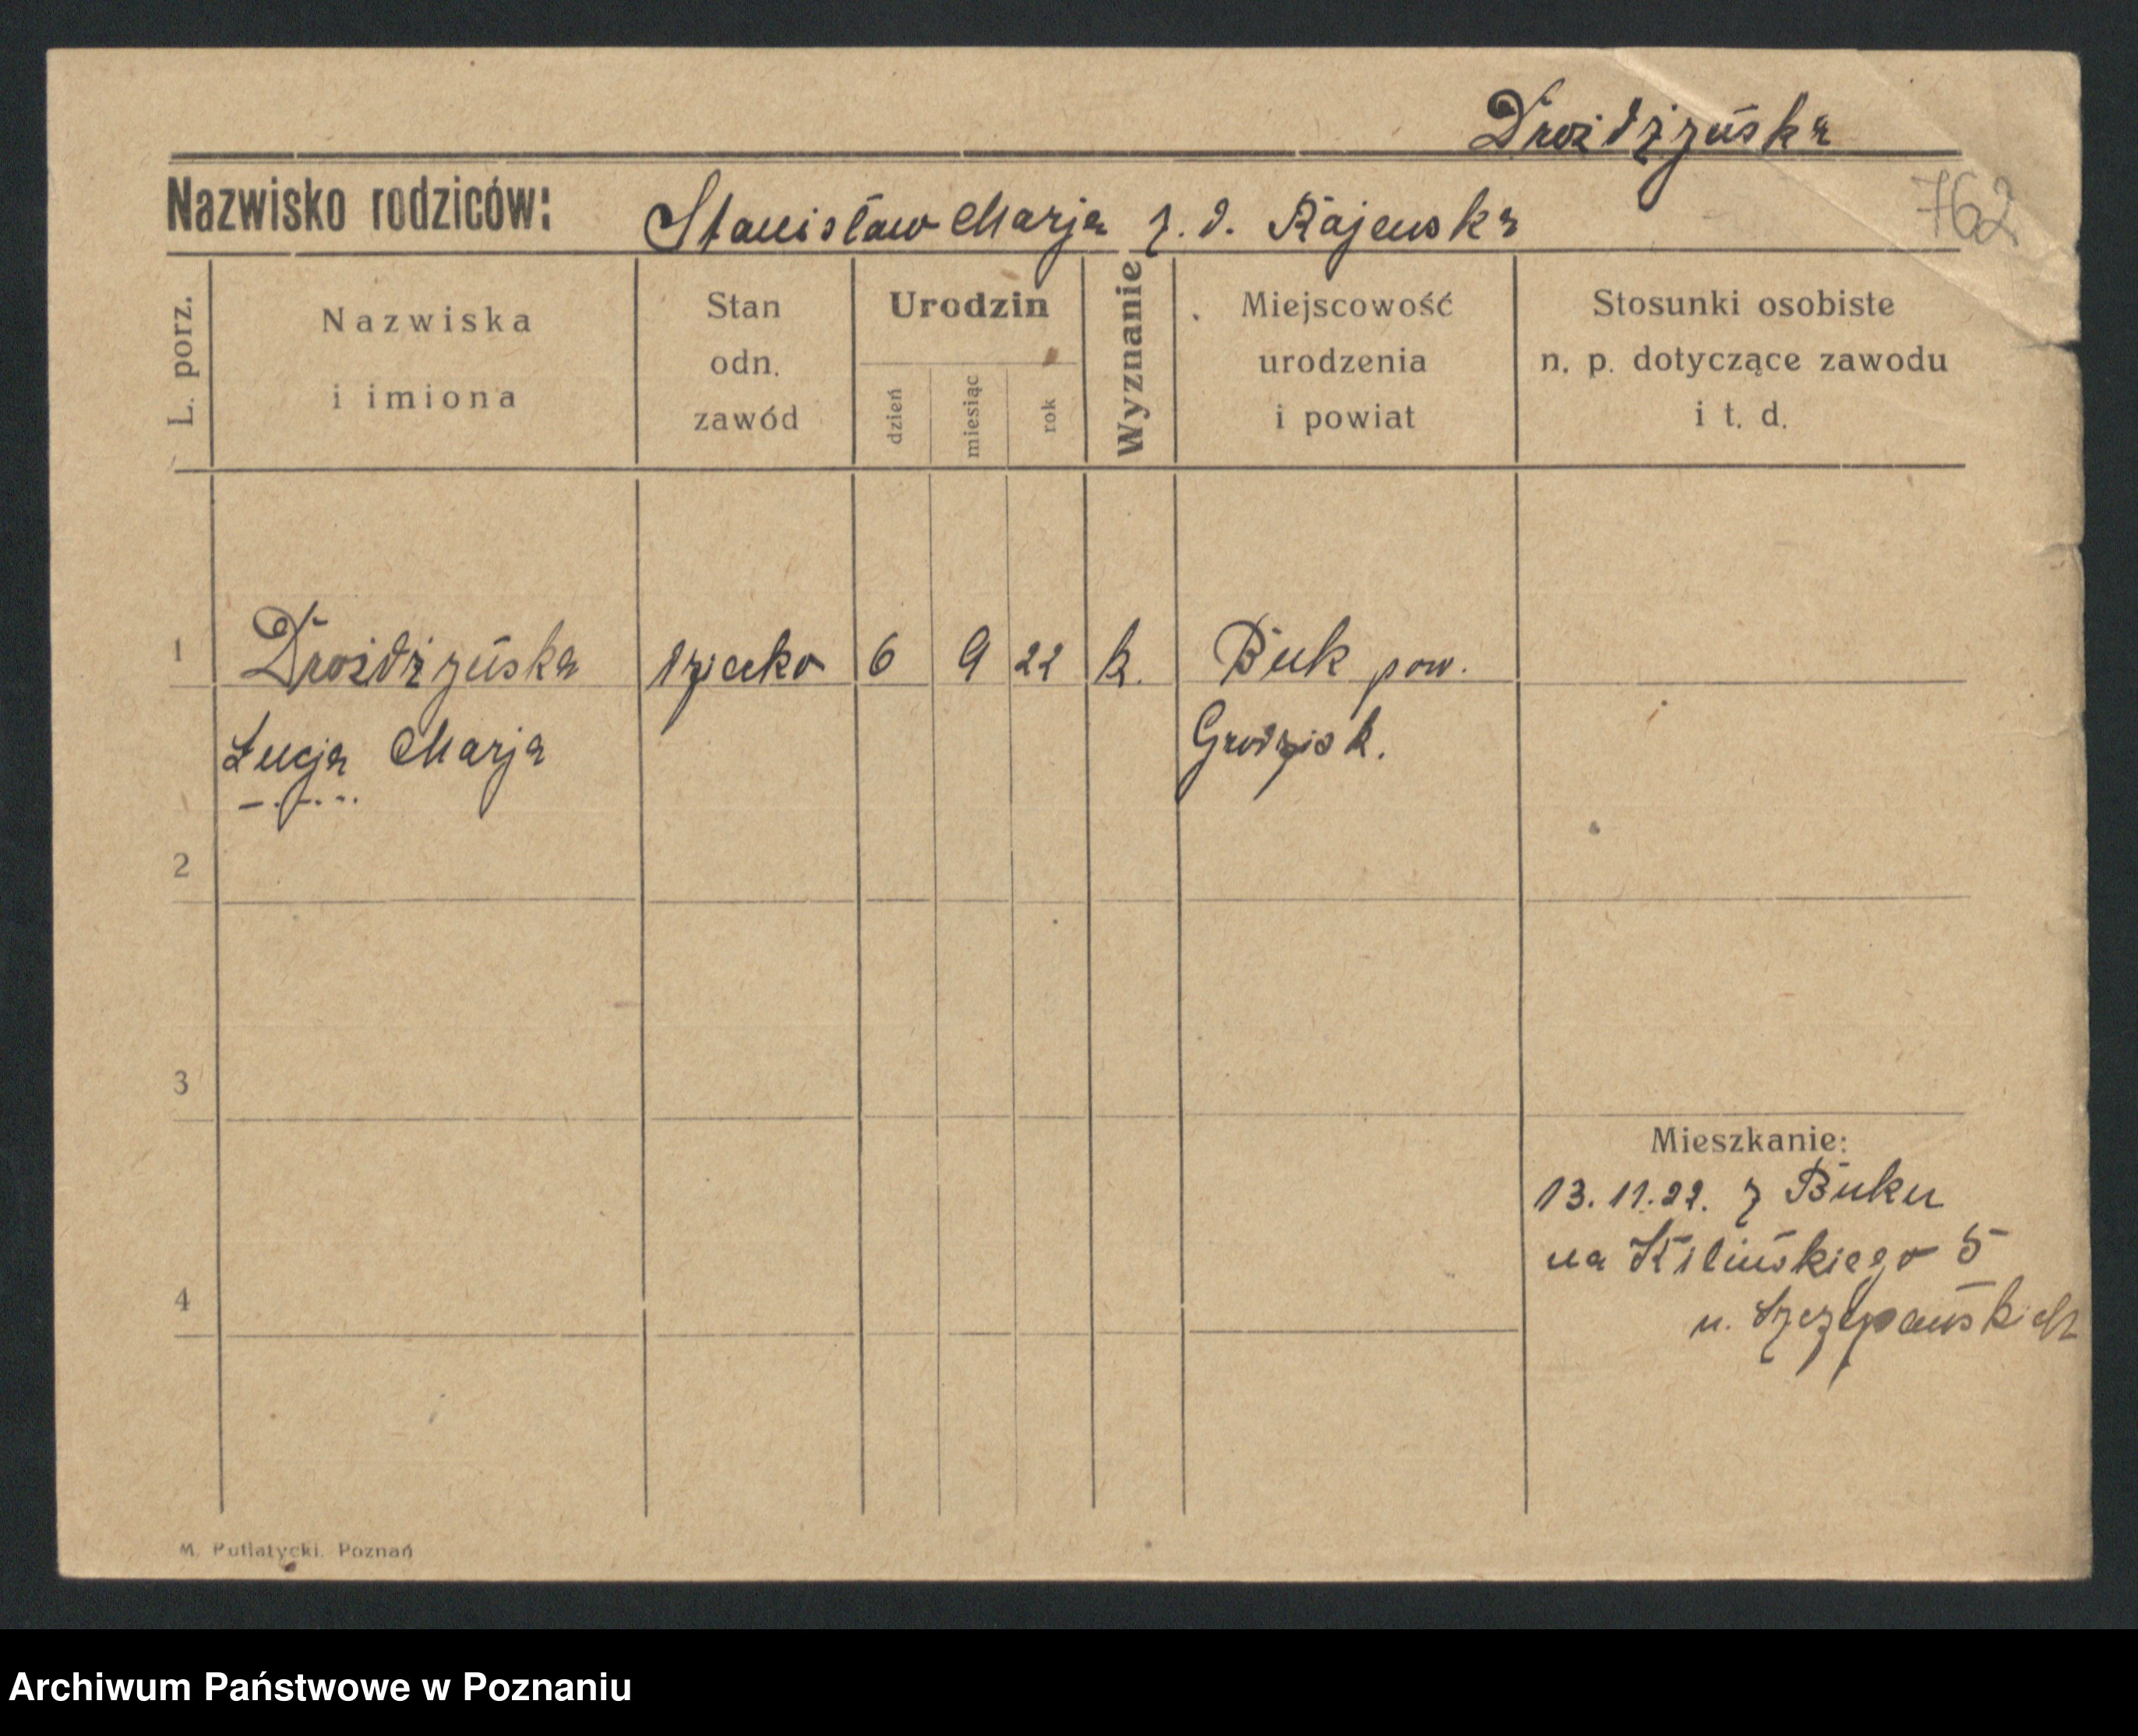 Drożdżyńska
762
Nazwisko rodziców: Stanisław Marja z. d. Rajewska
L. porz.
Nazwiska
i imiona
Stan
odn.
zawód
Urodzin
dzień
miesiąc
rok
Wyznanie
Miejscowość
urodzenia
i powiat
Stosunki osobiste
n. p. dotyczące zawodu
i t. d.
1 Drożdżyńska dziecko 6 9 22 k. Buk pow.
Łucja Marja Grodzisk.
2
3
Mieszkanie:
13.11.22. z Buku
na Kilińskiego 5
4
u. Szczepańskich
M. Putiatycki, Poznań
Archiwum Państwowe w Poznaniu